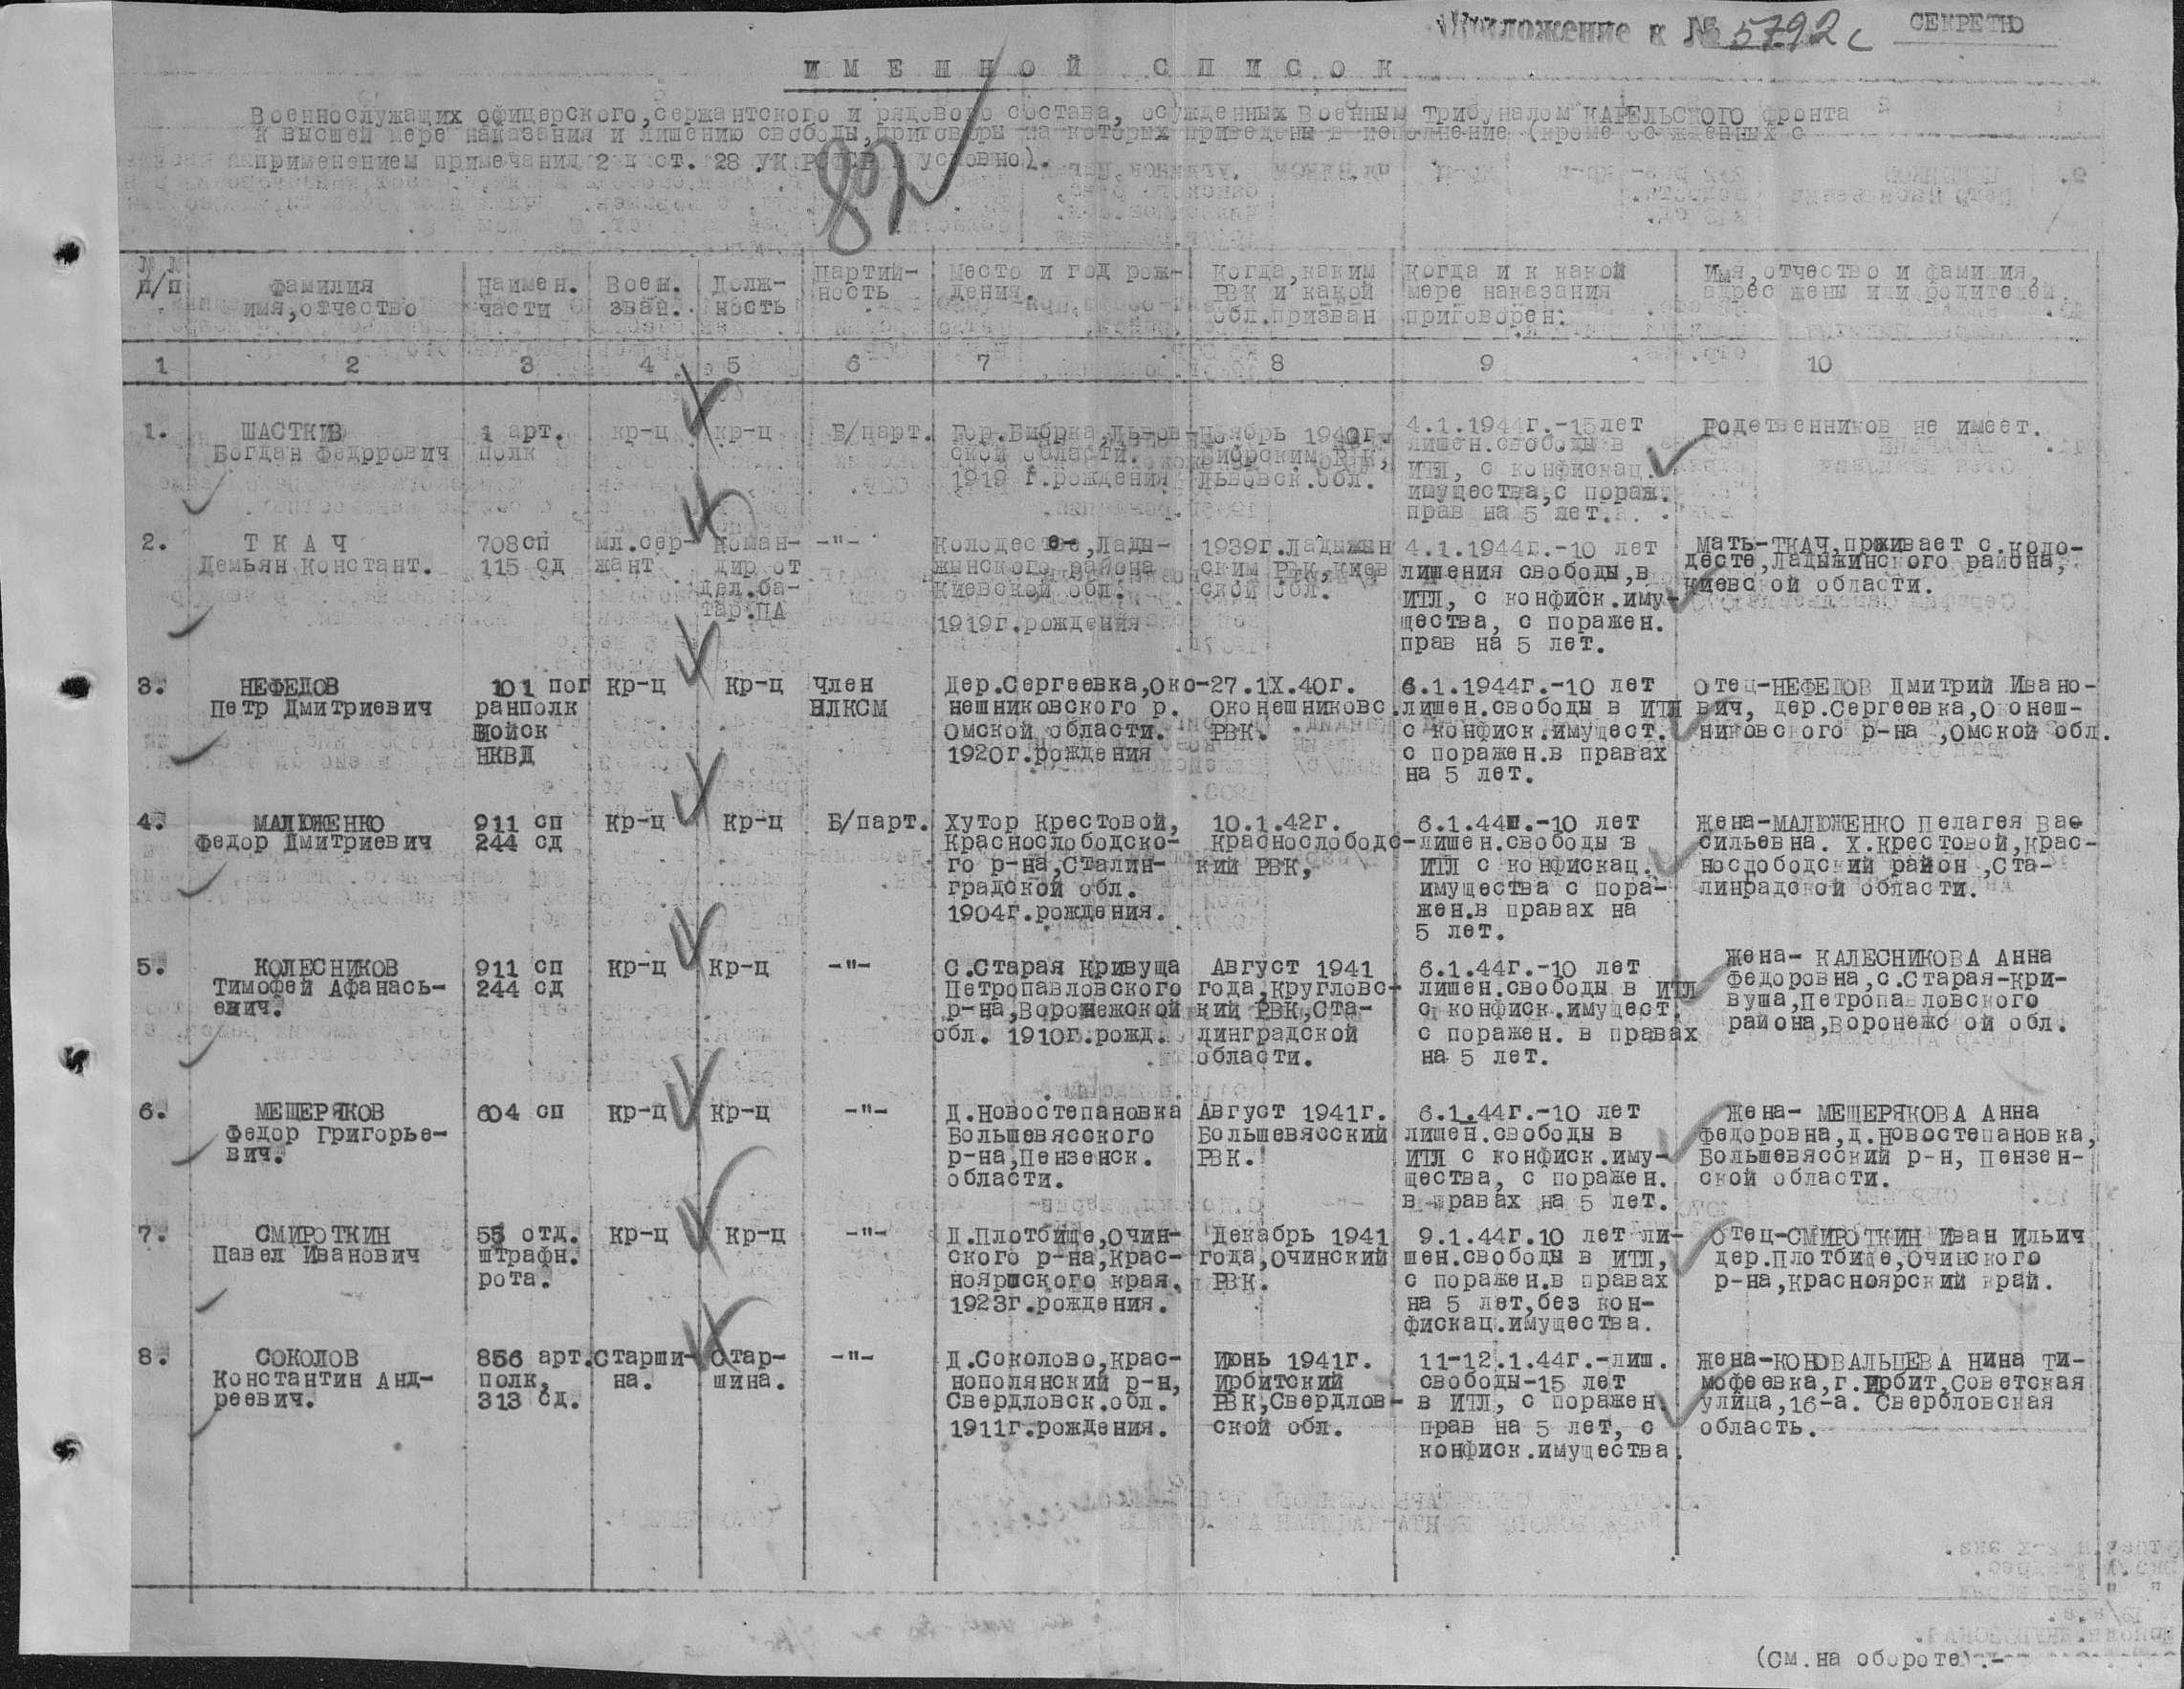 Приложение к № 5792с СЕКРЕТНО
ИМЕННОЙ СПИСОК
Военнослужащих офицерского, сержантского и рядового состава, осужденных Военным Трибуналом КАРЕЛЬСКОГО фронта
к высшей мере наказания и лишению свободы, приговоры на которых приведены в исполнение (кроме осужденных с
применением примечания 2 к ст. 28 УК РСФСР и условно).
802
№ № п/п
Фамилия
имя, отчество
Наимен.
части
Воен.
зван.
Долж-
ность
Партий-
ность
Место и год рож-
дения.
Когда, каким
РВК и какой
обл. призван
Когда и к какой
мере наказания
приговорен:
Имя, отчество и фамилия,
адрес жены или родителей.
1 2 3 4 5 6 7 8 9 10
1.
ШАСТКИВ
Богдан Федорович
1 арт.
полк
кр-ц
кр-ц
Б/парт.
Гор. Бибрка, Львов-
ской области.
1919 г. рождения
Ноябрь 1940г.
Бибрским РВК,
Львовск. обл.
4.1.1944г.-15 лет
лишен. свободы в
ИТЛ, с конфискац.
имущества, с пораж.
прав на 5 лет.
Родственников не имеет.
2.
ТКАЧ
Демьян Констант.
708 сп
115 сд
мл. сер-
жант
коман-
дир от
дел. ба-
тар. ПА
-"-
Колодестое-, Лады-
жынского района
Киевской обл.
1919г. рождения
1939г. Ладыжин
ским РВК, Киев
ской обл.
4.1.1944г.-10 лет
лишения свободы, в
ИТЛ, с конфиск. иму-
щества, с поражен.
прав на 5 лет.
Мать-ТКАЧ, прживает с. Коло-
десте, Ладыжинского района,
Киевской области.
3.
НЕФЕДОВ
Петр Дмитриевич
101 пог
ранполк
войск
НКВД
кр-ц
кр-ц
Член
ВЛКСМ
Дер. Сергеевка, Око-
нешниковского р.
Омской области.
1920г. рождения
27.IX.40г.
Оконешниковс.
РВК.
6.1.1944г.-10 лет
лишен. свободы в ИТЛ
с конфиск. имущест.
с поражен. в правах
на 5 лет.
Отец-НЕФЕДОВ Дмитрий Ивано-
вич, дер. Сергеевка, Оконеш-
никовского р-на, Омской обл.
4.
МАЛЮЖЕНКО
Федор Дмитриевич
911 сп
244 сд
кр-ц
кр-ц
Б/парт.
Хутор Крестовой,
Краснослободско-
го р-на, Сталин-
градской обл.
1904г. рождения.
10.1.42г.
Краснослободс-
кий РВК,
6.1.44г.-10 лет
лишен. свободы в
ИТЛ с конфискац.
имущества с пора-
жен. в правах на
5 лет.
Жена-МАЛЮЖЕНКО Пелагея Вас
сильевна. Х. Крестовой, Крас-
нослободский район, Ста-
линрадской области.
5.
КОЛЕСНИКОВ
Тимофей Афанась-
евич.
911 сп
244 сд
кр-ц
кр-ц
-"-
С. Старая Кривуща
Петропавловского
р-на, Воронежской
обл. 1910г. рожд.
Август 1941
года, Кругловс-
кий РВК, Ста-
линградской
области.
6.1.44г.-10 лет
лишен. свободы в ИТЛ
с конфиск. имущест.
с поражен. в правах
на 5 лет.
Жена- КАЛЕСНИКОВА Анна
Федоровна, с. Старая-Кри-
вуша, Петропавловского
района, Воронежс ой обл.
6.
МЕЩЕРЯКОВ
Федор Григорье-
вич.
604 сп
кр-ц
кр-ц
-"-
Д. Новостепановка
Большевясского
р-на, Пензенск.
области.
Август 1941г.
Большевясский
РВК.
6.1.44г.-10 лет
лишен. свободы в
ИТЛ с конфиск. иму-
щества, с поражен.
в правах на 5 лет.
Жена- МЕЩЕРЯКОВА Анна
Федоровна, д. Новостепановка,
Большевясский р-н, Пензен-
ской области.
7.
СМИРОТКИН
Павел Иванович
55 отд.
штрафн.
рота.
кр-ц
кр-ц
-"-
Д. Плотбище, Очин-
ского р-на, Крас-
ноярского края.
1923г. рождения.
Декабрь 1941
года, Очинский
РВК.
9.1.44г. 10 лет ли-
шен. свободы в ИТЛ,
с поражен. в правах
на 5 лет, без кон-
фискац. имущества.
Отец-СМИРОТКИН Иван Ильич
дер. Плотбище, Очинского
р-на, Красноярский край.
8.
СОКОЛОВ
Константин Анд-
реевич.
856 арт.
полк,
313 сд.
Старши-
на.
Стар-
шина.
-"-
Д. Соколово, Крас-
нополянский р-н,
Свердловск. обл.
1911г. рождения.
Июнь 1941г.
Ирбитский
РВК, Свердлов-
ской обл.
11-12.1.44г.-лиш.
свободы-15 лет
в ИТЛ, с поражен.
прав на 5 лет, с
конфиск. имущества.
Жена-КОНОВАЛЬЦЕВА Нина Ти-
мофеевка, г. Ирбит, Советская
улица, 16-а. Свербловская
область.
(См. на обороте).-